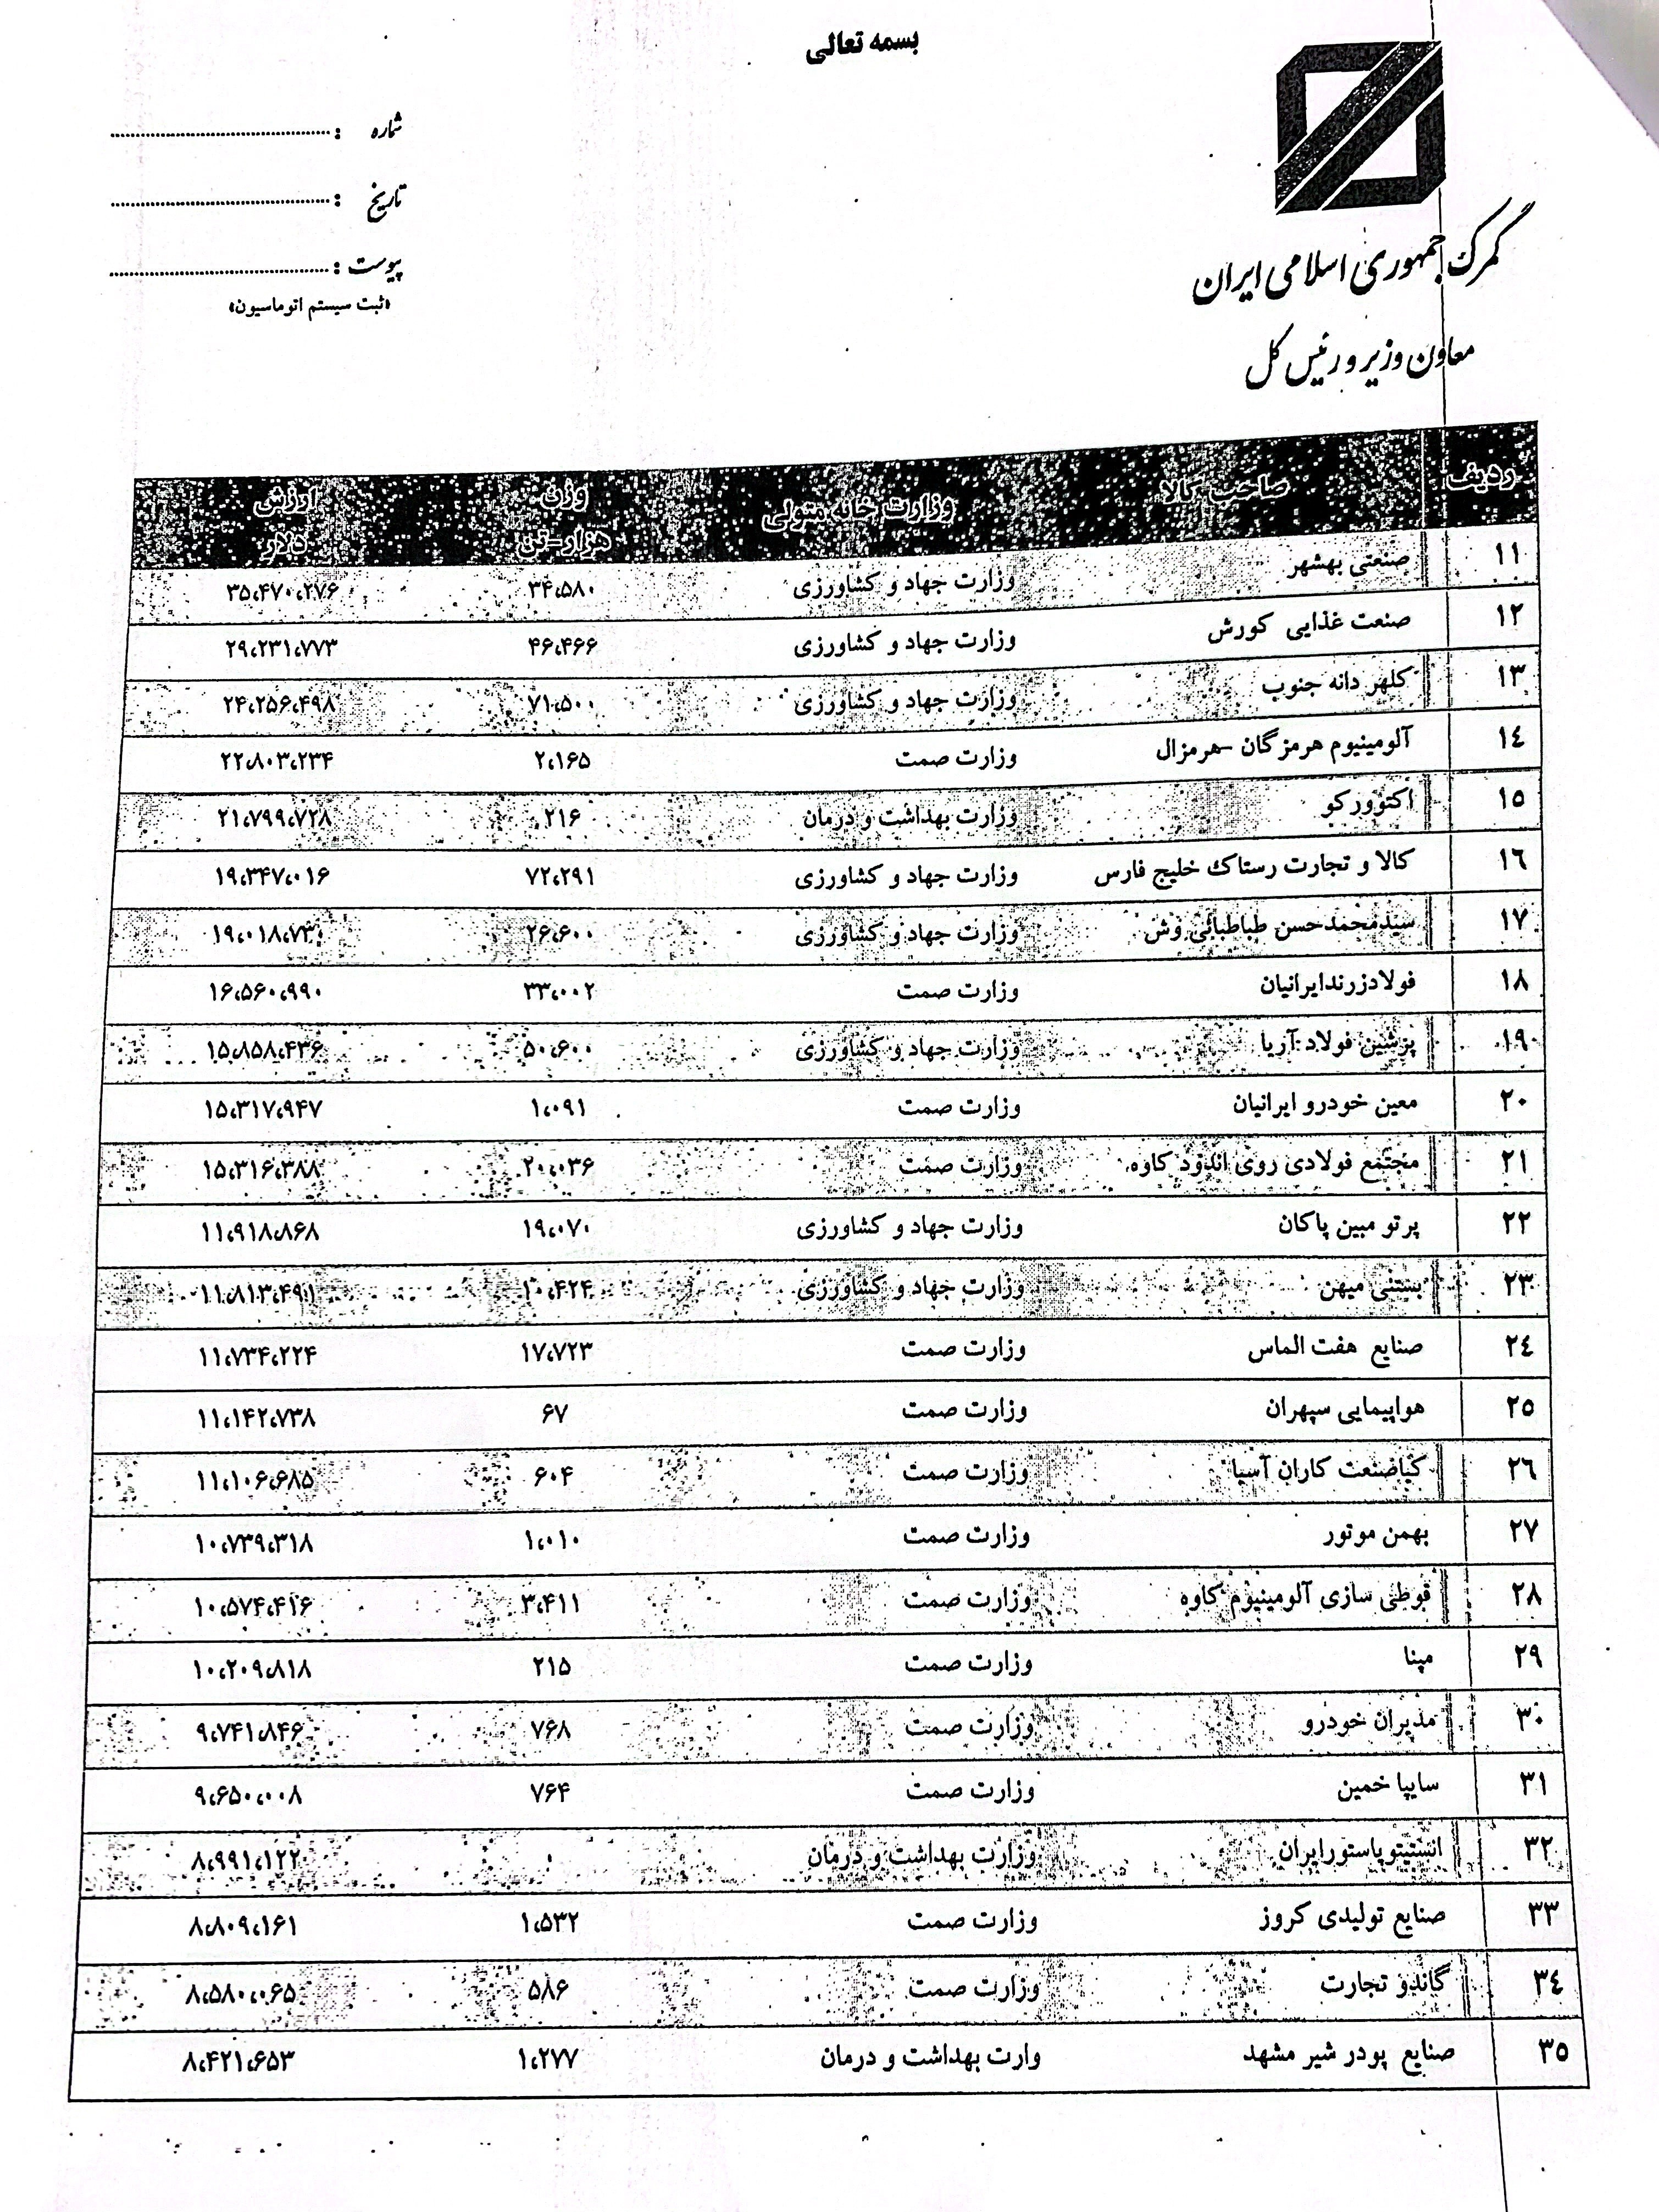 بسمه تعالی
شماره :
تاریخ :
پیوست :
«ثبت سیستم اتوماسیون»
گمرک جمهوری اسلامی ایران
معاون وزیر و رئیس کل
ردیف صاحب کالا وزارت خانه متولی وزن هزار-تن ارزش دلار
۱۱ صنعتی بهشهر وزارت جهاد و کشاورزی ۳۴،۵۸۰ ۳۵،۴۷۰،۲۷۶
۱۲ صنعت غذایی کورش وزارت جهاد و کشاورزی ۴۶،۴۶۶ ۲۹،۲۳۱،۷۷۳
۱۳ کلهر دانه جنوب وزارت جهاد و کشاورزی ۷۱،۵۰۰ ۲۴،۲۵۶،۴۹۸
۱۴ آلومینیوم هرمزگان -هرمزال وزارت صمت ۲،۱۶۵ ۲۲،۸۰۳،۲۳۴
۱۵ اکتوورکو وزارت بهداشت و درمان ۲۱۶ ۲۱،۷۹۹،۷۲۸
۱۶ کالا و تجارت رستاک خلیج فارس وزارت جهاد و کشاورزی ۷۲،۲۹۱ ۱۹،۳۴۷،۰۱۶
۱۷ سیدمحمدحسن طباطبائی وش وزارت جهاد و کشاورزی ۲۶،۶۰۰
۱۸ فولادزرندایرانیان وزارت صمت ۳۳،۰۰۲ ۱۶،۵۶۰،۹۹۰
۱۹ پرشین فولاد آریا وزارت جهاد و کشاورزی ۵۰،۶۰۰ ۱۵،۸۵۸،۴۳۶
۲۰ معین خودرو ایرانیان وزارت صمت ۱،۰۹۱ ۱۵،۳۱۷،۹۴۷
۲۱ مجتمع فولادی روی اندود کاوه وزارت صمت ۲۰،۰۳۶ ۱۵،۳۱۶،۳۸۸
۲۲ پرتو مبین پاکان وزارت جهاد و کشاورزی ۱۹،۰۷۰ ۱۱،۹۱۸،۸۶۸
۲۳ بستنی میهن وزارت جهاد و کشاورزی ۱۱،۸۱۳،۴۹۱
۲۴ صنایع هفت الماس وزارت صمت ۱۷،۷۲۳ ۱۱،۷۳۴،۲۲۴
۲۵ هواپیمایی سپهران وزارت صمت ۶۷ ۱۱،۱۴۲،۷۳۸
۲۶ کیاصنعت کاران آسیا وزارت صمت ۶۰۴ ۱۱،۱۰۶،۶۸۵
۲۷ بهمن موتور وزارت صمت ۱،۰۱۰ ۱۰،۷۳۹،۳۱۸
۲۸ قوطی سازی آلومینیوم کاوه وزارت صمت ۳،۴۱۱ ۱۰،۵۷۴،۴۱۶
۲۹ مپنا وزارت صمت ۲۱۵ ۱۰،۲۰۹،۸۱۸
۳۰ مدیران خودرو وزارت صمت ۷۶۸ ۹،۷۴۱،۸۴۶
۳۱ سایپا خمین وزارت صمت ۷۶۴ ۹،۶۵۰،۰۰۸
۳۲ انستیتوپاستورایران وزارت بهداشت و درمان ۰ ۸،۹۹۱،۱۲۲
۳۳ صنایع تولیدی کروز وزارت صمت ۱،۵۳۲ ۸،۸۰۹،۱۶۱
۳۴ گاندو تجارت وزارت صمت ۵۸۶ ۸،۵۸۰،۰۶۵
۳۵ صنایع پودر شیر مشهد وارت بهداشت و درمان ۱،۲۷۷ ۸،۴۲۱،۶۵۳